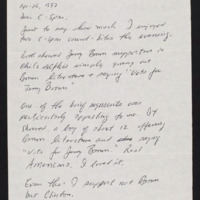 Apr. 26, 1992
Dear C-Span,
Just to say how much I enjoyed
your C-Span crowd-like this evening.
showed Jerry Brown supporters in
giving out
Brown literature & saying "Vote for
Jerry Brown."
One of the brief segments was
particularly appealing to me. It
showed a boy of about 12 offering
Brown literature and saying
"Vote for Jerry Brown." Real
Americana. I loved it.
Even tho' I support not Brown
but Clinton.